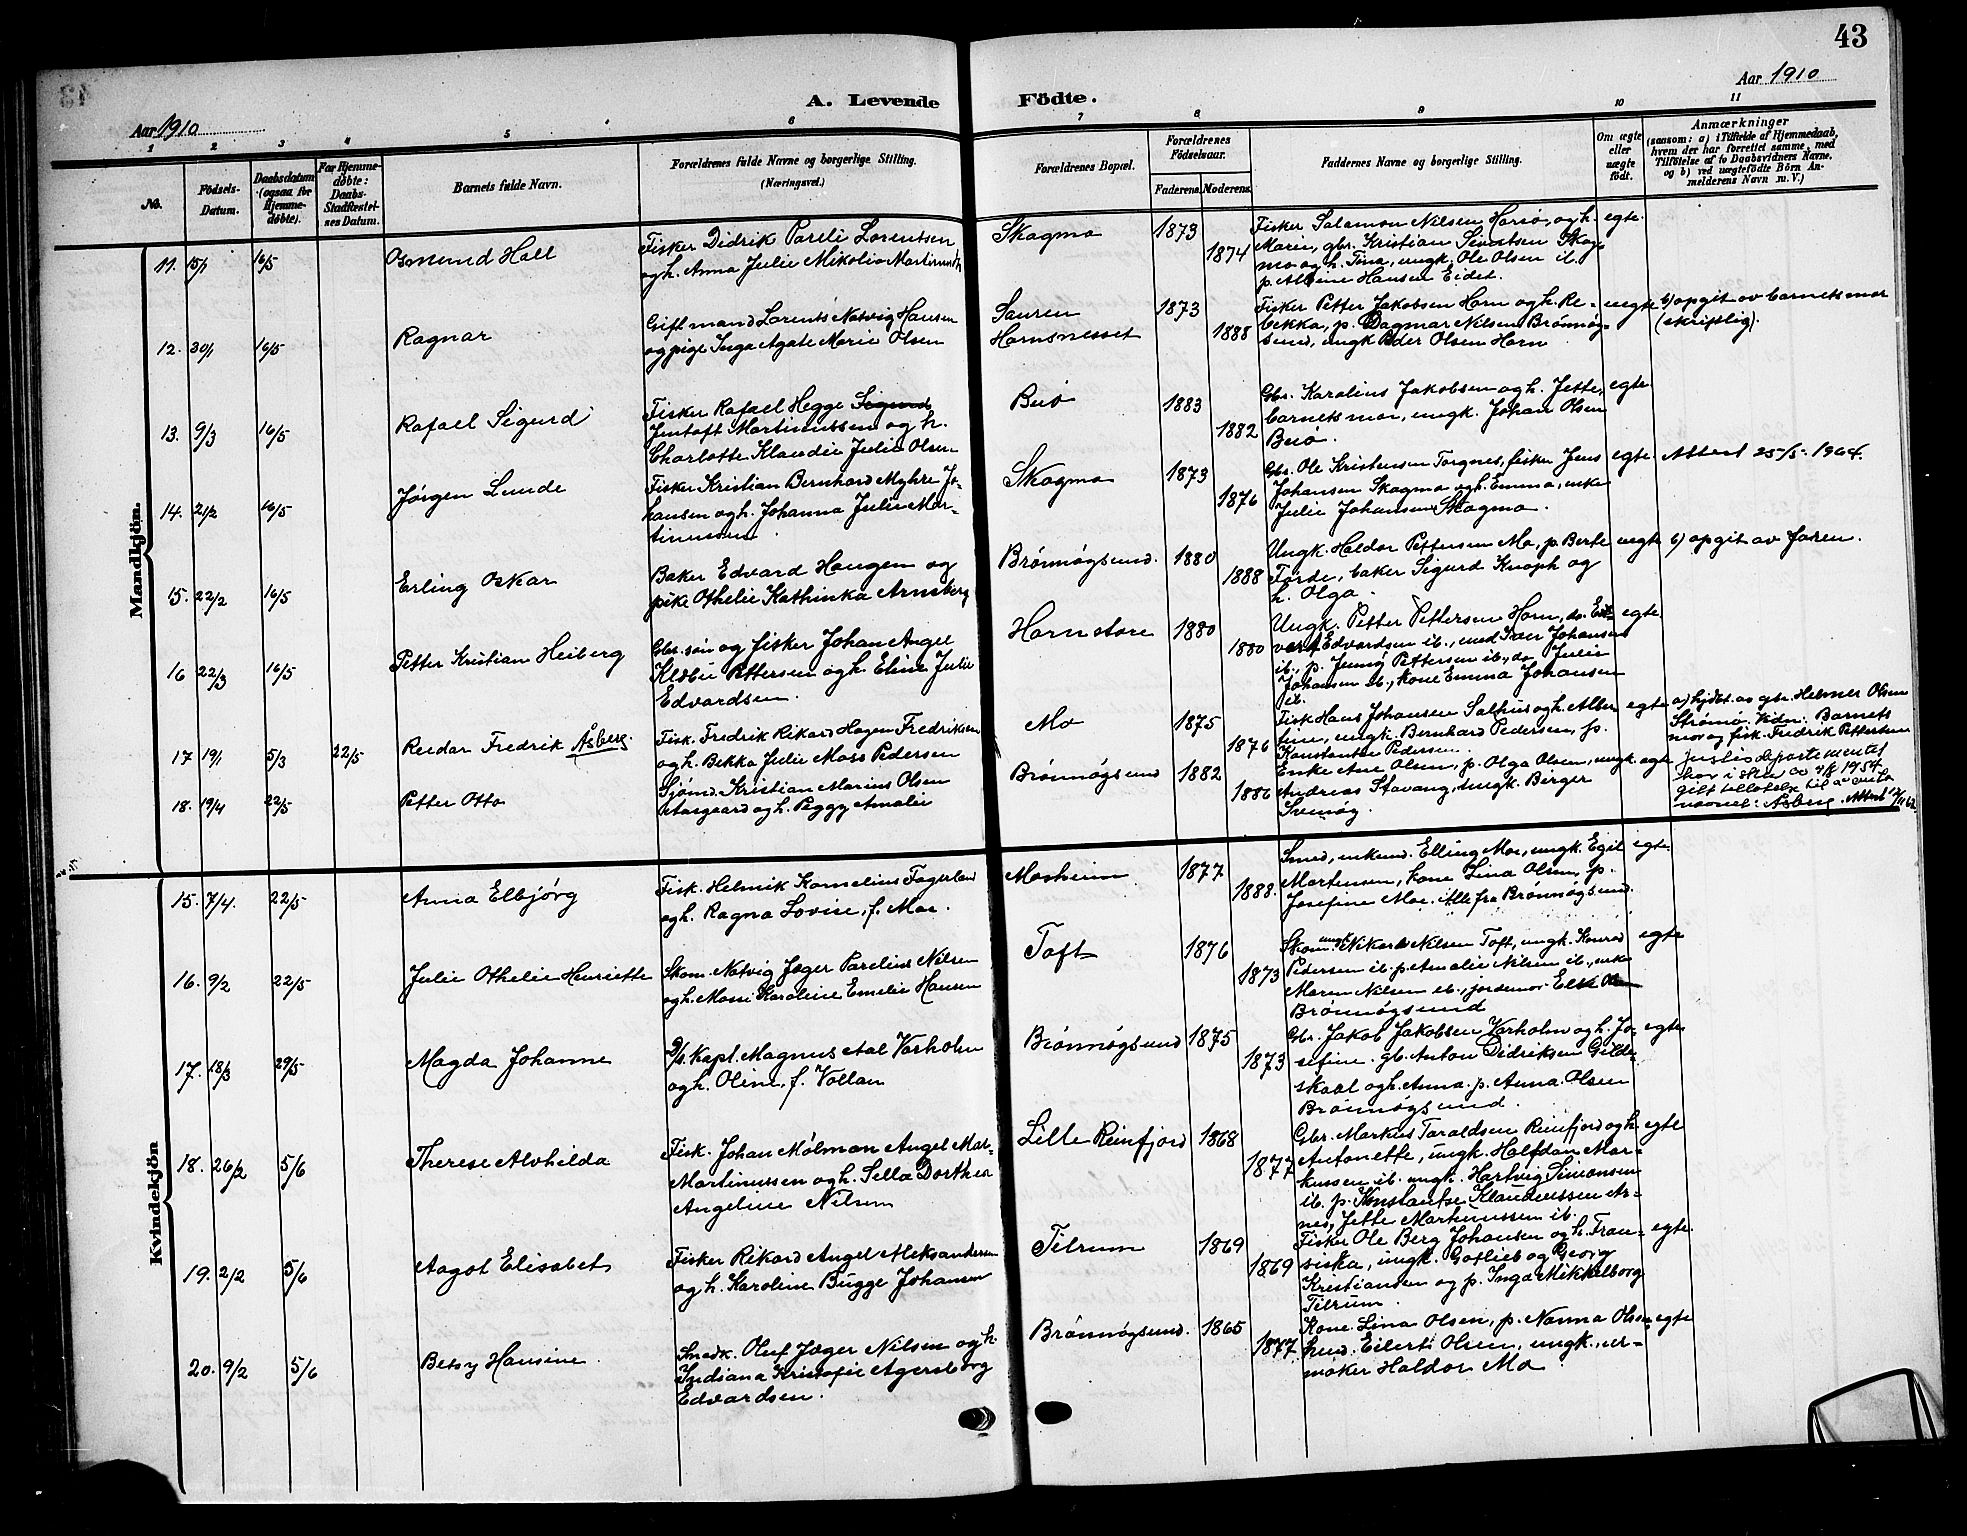 43
Aar 1910
A. Levende
Födte.
Aar 1910
1 2 3 4 5 6 7 8 9 10 11
No.
Födsels-
Datum.
Daabsdatum
(ogsaa for
Hjemme-
døbte).
For Hjemme-
døbte:
Daabs-
Stadfæstel-
ses Datum.
Barnets fulde Navn.
Forældrenes fulde Navne og borgerlige Stilling.
(Næringsvei.)
Forældrenes Bopæl.
Forældrenes
Födselsaar.
Faderens. Moderens.
Faddernes Navne og borgerlige Stilling.
Om ægte
eller
uægte
født.
Anmærkninger
(saasom: a) i Tilfælde af Hjemmedaab,
hvem der har forrettet samme, med
Tilföielse af to Daabsvidners Navne,
og b) ved uægtefödte Börn An-
melderens Navn m. V.)
Mandkjön.
11. 15/1 16/5 Osmund Hall
Fisker Didrik Pareli Lorentsen
og h. Anna Julie Mikolia
Skagmo 1873 1874
Fisker Salamon Nilsen Horsø, og h.
Marin, gbr. Kristian Sivertsen Skag-
mo og h. Tina, ungk. Ole Olsen ib.
p. Albine Hansen Eidet.
egte.
12. 30/1 16/5 Ragnar
Gift mand Lorents Natvig Hansen
og pige Inga Agate Marie Olsen
Sauren
Hornsnesset 1873 1888
Fisker Petter Jakobsen Horn og h. Re-
bekka, p. Dagmar Nilsen Brønnøy-
sund, ungk Peder Olsen Horn
uegte b) opgit av barnets mor
(skriftlig).
13. 9/3 16/5 Rafael Sigurd
Fisker Rafael Hegge Sigurd
Jentoft Martinussen og h.
Charlotte Klaudie Julie Olsen
Buø 1883 1882
Gbr. Karolius Jakobsen og h. Jette,
barnets mor, ungk. Johan Olsen
Buø.
egte
14. 21/2 16/5 Jørgen Lunde
Fisker Kristian Bernhard Myhre Jo-
hansen og h. Johanna Julie Mar-
tinussen
Skagmo 1873 1876
Gbr. Ole Kristensen Torgnes, fisker Jens
Johansen Skagmo og h. Emma, enke
Julie Johansen Skagmo.
egte. Attest 25/5-1964.
15. 22/2 16/5 Erling Oskar
Baker Edvard Haugen og
pike Othelie Kathinka Arnsberg
Brønnøysund. 1880 1888
Ungk. Haldor Pettersen Mo, p. Berte
Førde, baker Sigurd Knoph og
h. Olga.
uegte b) opgit av faren.
16 22/3 16/5 Petter Kristian Heiberg
Gbr. søn og fisker Johan Angel
Klæbu Pettersen og h. Eline Julie
Edvardsen.
Horn store 1880 1880
Ungk. Petter Pettersen Horn, do. Ed-
vard Edvardsen ib., Johansen
ib., p. Jenny Pettersen ib., do Julie
Johansen ib., kone Emma Johansen
ib.
egte
17 19/1 5/3 22/5 Reidar Fredrik Åsberg.
Fisk. Fredrik Rikard Hagen Fredriksen
og h. Bekka Julie Moss Pedersen
Mo 1875 1876
Fisk Hans Johansen Salhus og h. Alber-
tine, ungk. Bernhard Pedersen, p.
Konstanse Pedersen.
egte a) hjdøt. av gbr. Helmer Olsen
Strømø. Vidn: Barnets
mor og fisk. Fredrik Pettersen
Justisdepartementet
har i skr. av 4/8 1954
gitt tillatelse til å anta
navnet: Åsberg. Attest
18. 19/4 22/5 Petter Otto
Sjømd. Kristian Marius Olsen
Aasgaard og h. Peggy Amalie
Brønnøysund 1882 1886
Enke Ane Olsen, p. Olga Olsen, ungk.
Andreas Stavang, ungk. Birger
Svenøy
egte
Kvindekjön
15. 7/4. 22/5 Anna Elbjørg
Fisk. Helmik Kornelius Fagerland
og h. Ragna Lovise, f. Moe.
Mosheim 1877 1888.
Smed, enkem. Elling Moe, ungk. Egil
Martensen, kone Lina Olsen, p.
Josefine Moe. Alle fra Brønnøysund.
egte.
16. 9/2 22/5 Julie Othelie Henriette
Skom. Natvig Jæger Parelius Nilsen
og h. Massi Karoline Emelie Hansen
Toft 1876 1873
Skom. ungk. Nikard Nilsen Toft, ungk. Konrad
Pedersen ib. p. Amalie Nilsen ib., enke
Maren Nilsen ib., jordemor
Brønnøysund
egte
17. 18/3 29/5 Magda Johanne
D/s. Kapt. Magnus Aal Varholm
og h. Oline, f. Vollan
Brønnøysund 1875 1873
Gbr. Jakob Jakobsen Varholm og h. Jo-
sefine. gb. Anton Didriksen Gilde-
skaal og h. Anna. p. Anna Olsen
Brønnøysund.
egte
18. 26/2 5/6 Therese Alvhilda
Fisk. Johan Mølman Angel Mar-
Martinussen og h. Sella Dorthea
Angeline Nilsen
Lille Reinfjord 1868 1877
Gbr. Markus Taraldsen Reinfjord og h.
Antonette, ungk. Halfdan Mar-
kussen ib. ungk. Hartvig Simonsen
ib. p. Konstantse Klaudiussen Ar-
nes, Jette Martinussen ib.
egte
19. 2/2 5/6 Aagot Elisabet
Fisker Rikard Angel Aleksandersen
og h. Karoline Bugge Johansen
Tilrum 1869 1869
Fisker Ole Berg Johansen og h. Fran-
siska, ungk. Gotlieb og Georg
Kristiansen og p. Inga Mikkelborg
Tilrum.
egte.
20. 9/2 5/6 Betsy Hansine
Smedk. Oluf Jæger Nilsen og h.
Indiana Kristofie Agersborg
Edvardsen.
Brønnøysund. 1865 1877
Kone Lina Olsen, p. Nanna Olsen,
hmd. Eilert Olsen, ungk. ur-
maker Haldor Mo
egte